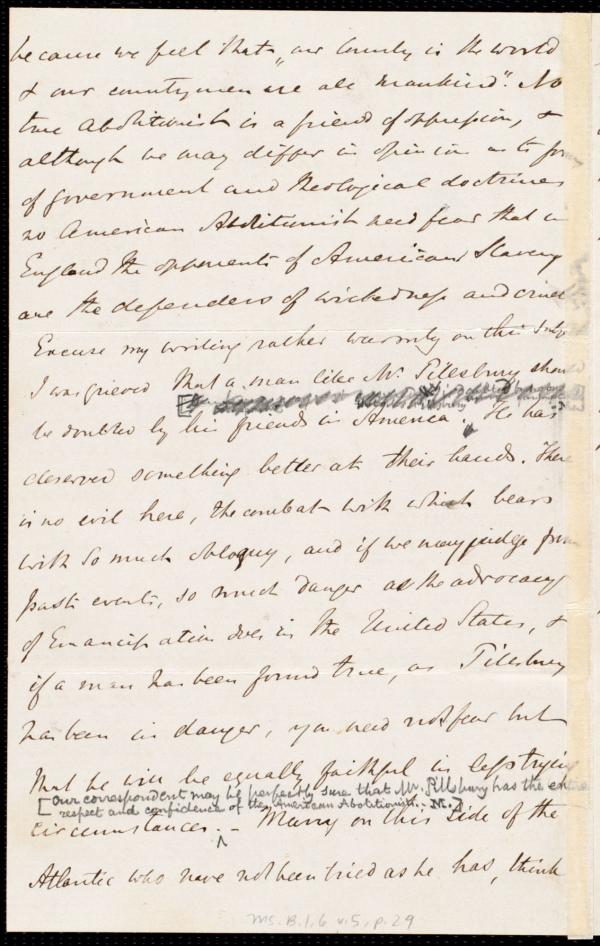 because we feel that "our Country is the world
& our countrymen are all mankind". No
true Abolitionist is a friend of oppression, &
although we may differ in opinion as to form
of government and theological doctrines
no American Abolitionist need fear that in
England the opponents of American Slavery
are the defenders of wickedness and cruel
Excuse my writing rather warmly on this Subje
I was grieved that a man like Mr. Pillsbury shou
be doubted by his friends in America. He has
deserved something better at their hands. There
is no evil here, the combat with which bears
with so much obloquy, and if we may judge from
past events, so much danger as the advocacy
of Emancipation does in the United States, &
if a man has been found true, as Pillsbury
has been in danger, you need not fear but
that he will be equally faithful in less trying
[Our correspondent may be perfectly sure that Mr. Pillsbury has the entire
respect and confidence of the American Abolitionists. - M.]
circumstances. - Many on this side of the
Atlantic who have not been tried as he has, think
Ms. B.1.6 v.5, p.29